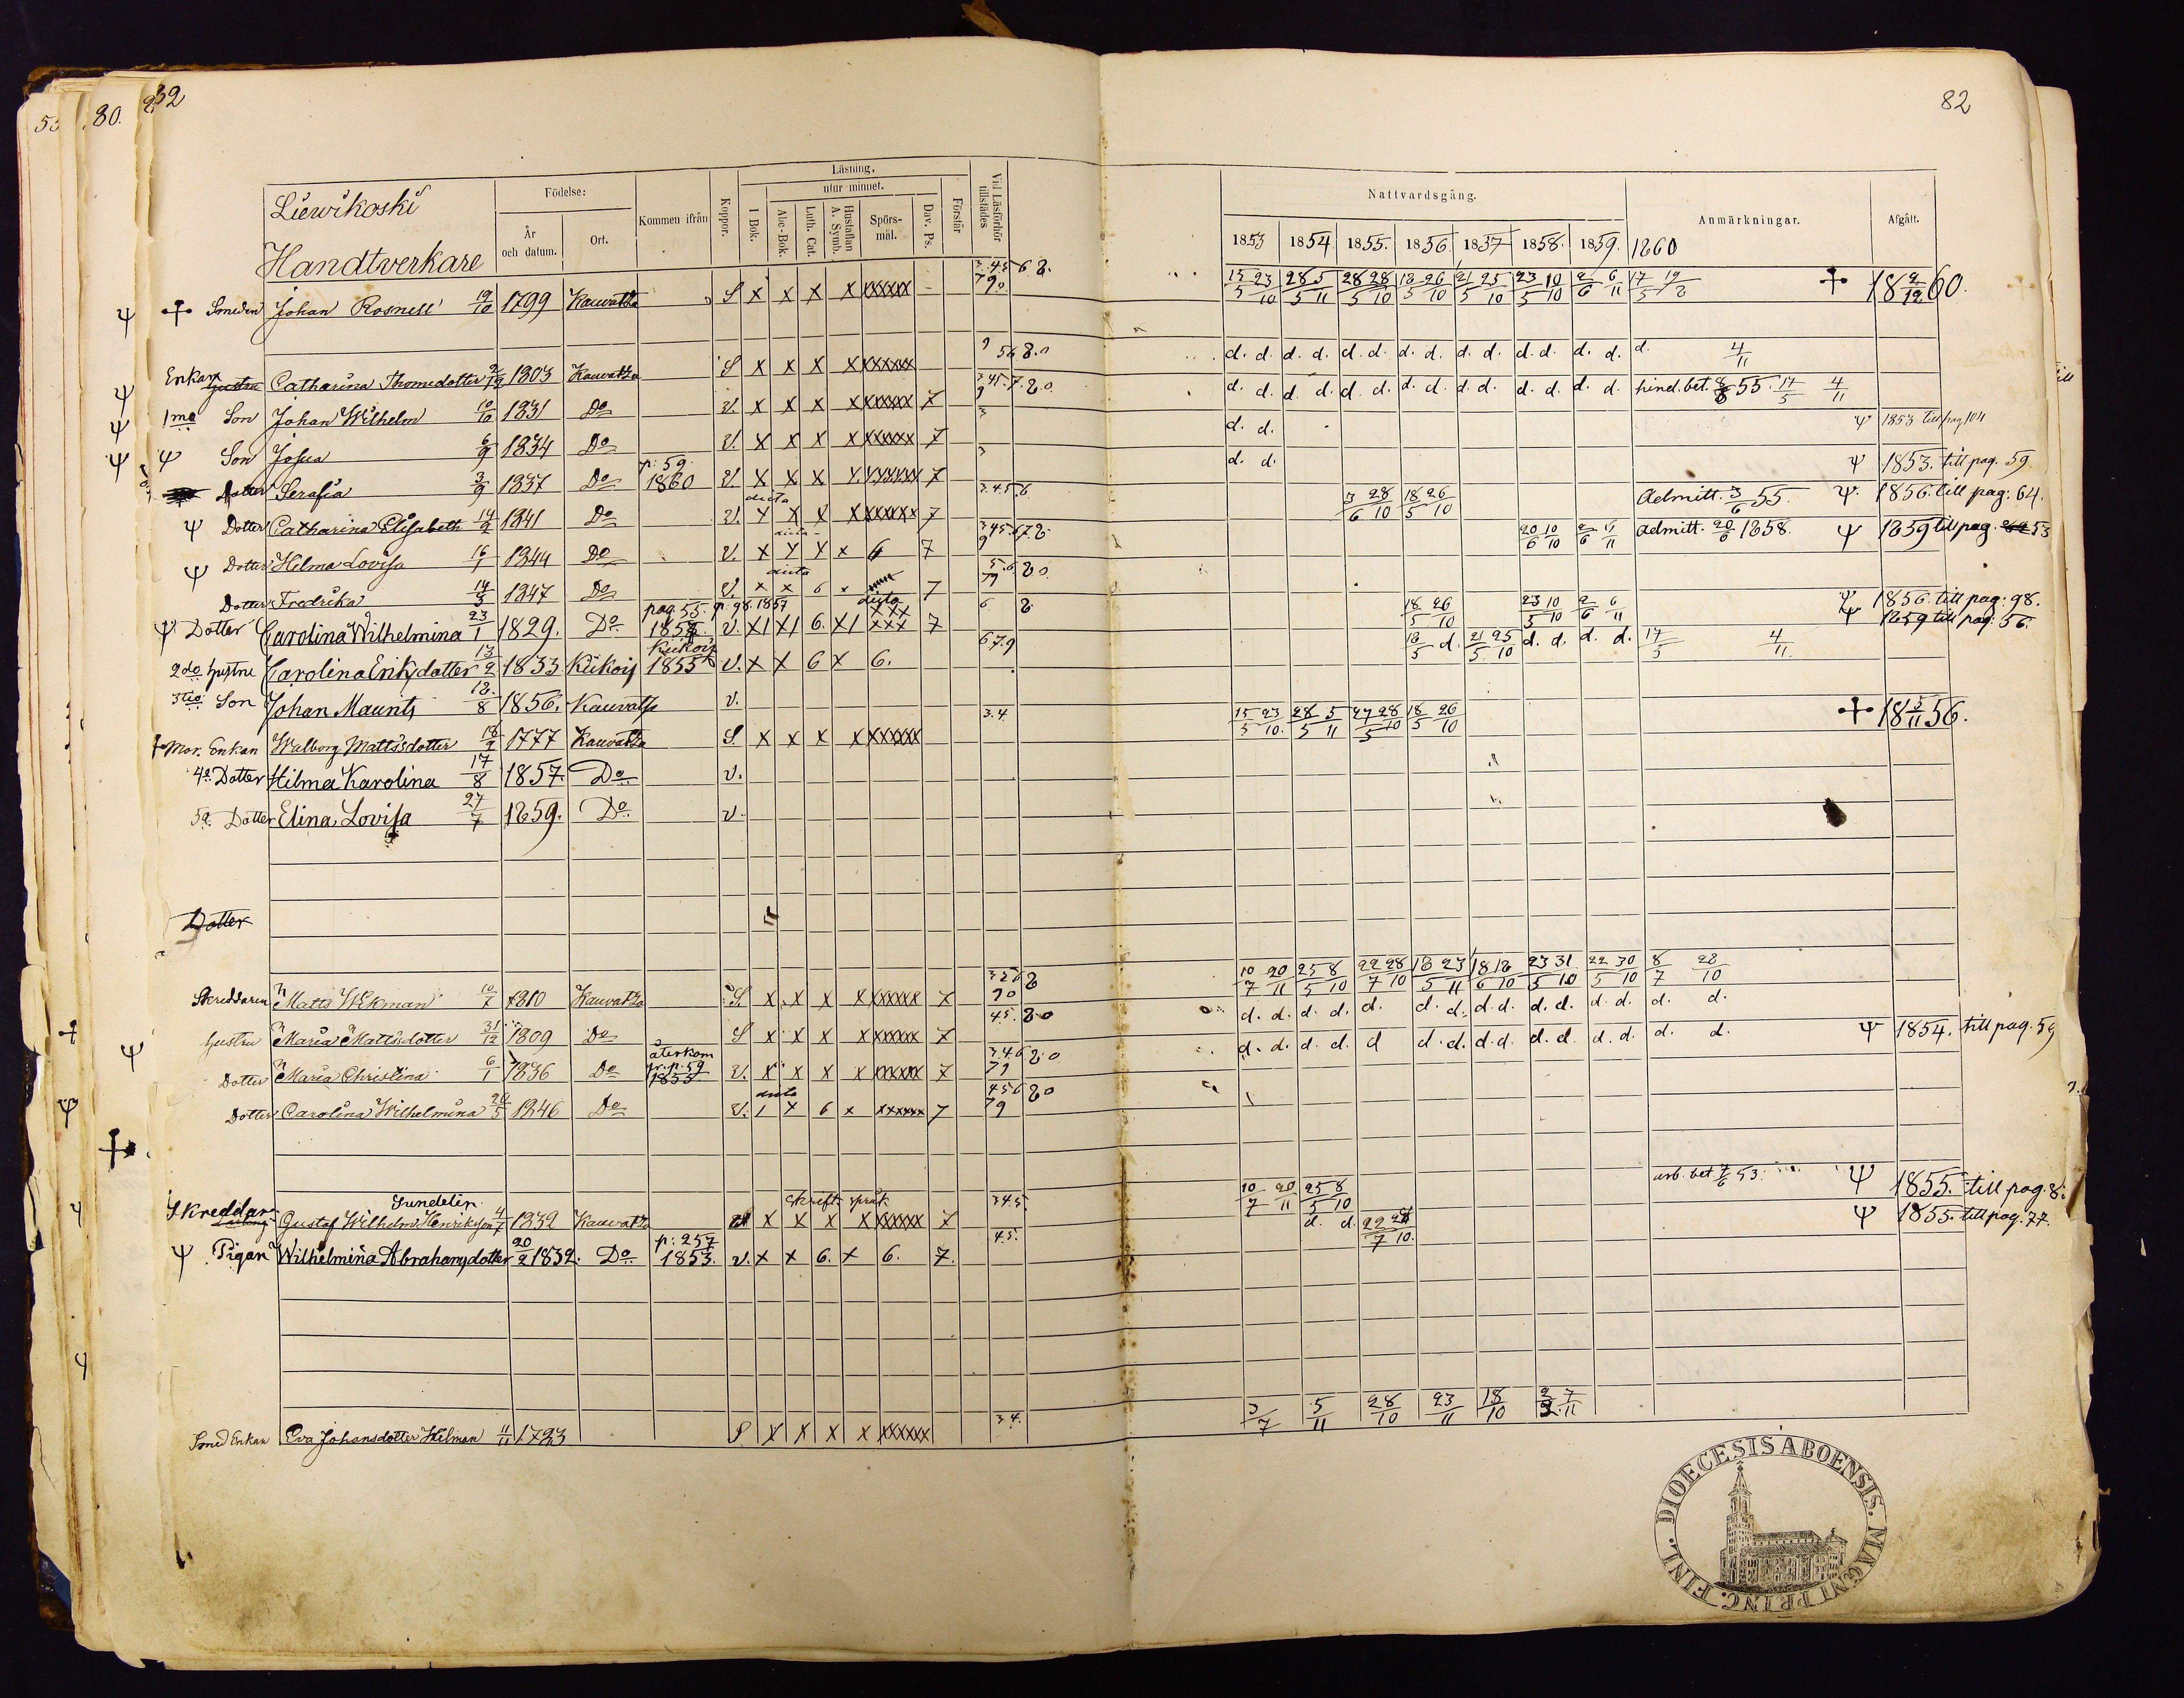 53 80. 232
82
Liewikoski
Handtverkare
Födelse:
År och datum.
Ort.
Kommen ifrån
Koppor.
Läsning,
I Bok.
utur minnet.
Abc-Bok.
Luth. Cat.
Hustaflan A. Symb.
Spörs-mål.
Dav. Ps.
Förstår
Vid Läsförhör tillstädes
Nattvardsgång.
1853 1854. 1855. 1856. 1857 1858. 1859. 1860
Anmärkningar.
Afgått.
Smeden Johan Rosnell 19/10 1799 Kauvatsa S x x x x xxxxxx 15/5 23/10 28/5 5/11 28/5 28/10 18/5 26/10 21/5 25/10 23/5 10/10 2/6 6/11 17/5 18 2/12 60.
Enkan Hustru Catharina Thomedotter 2/12 1803 Kauvatsa S x x x x xxxxxx d. d. d. d. d. d. d. d. d. d. d. d. d. d. d. 4/11
1ma Son Johan Wilhelm 10/10 1831 Do v. x x x x xxxxxx 7 d. d. d. d. d. d. d. d. d. d. d. d. d. d. hind. bet. 8/8 55. 17/5 4/11
Son Josua 6/9 1834 Do v. x x x x xxxxxx 7 d. d. ψ 1853 till pag 104
Dotter Serafia 3/9 1837 Do p: 59. 1860 v. x x x x xxxxxx 7 d. d. ψ 1853. till pag. 59.
ψ Dotter Catharina Elisabeth 14/2 1841 Do v. x x x xxxxxx 7 3.4.5.6 3/6 28/10 18/5 26/10 Admitt. 3/6 55. ψ. 1856. till pag: 64.
ψ Dotter Helma Lovisa 16/1 1844 Do v. x x x x 6 7 20/6 10/10 2/6 6/11 Admitt. 20/6 1858. ψ 1859 till pag. 53
Dotter Fredrika 14/3 1847 Do v. x x 6 x 7
ψ Dotter Carolina Wilhelmina 23/1 1829. Do pag. 55. p. 98. 1857 v. 6 xxx 7 18/5 26/10 23/5 10/10 2/6 6/11 ψ 1856. till pag: 98. ψ 1859 till pag: 56.
2do hustru Carolina Eriksdotter 13/2 1833 Kiikois Kiikois 1855 v. x x 6 x 6. 6.7.9 18/5 d. 21/5 25/10 d. d. d. d. 17/5 4/11
3tio Son Johan Maurits 18/8 1856. Kauvatsa v.
Mor. Enkan Walborg Mattsdotter 18/2 1777 Kauvatsa S. x x x x xxxxxx 3.4. 15/5 23/10. 28/5 5/11 27/5 28/10 18/5 26/10 18 5/11 56.
4a Dotter Hilma Karolina 17/8 1857. Do v.
5a Dotter Elina Lovisa 27/7 1859. Do v.
Dotter
Skreddaren Matts Wikman 10/7 1810 Kauvatsa S x x x x xxxxxx 7 10/7 20/11 25/5 8/10 22/7 28/10 18/5 23/11 18/6 18/10 23/5 31/10 22/5 30/10 8/7 28/10
hustru Maria Mattsdotter 31/12 1809 Do S x x x x xxxxxx 7 d. d. d. d. d. d. d. d. d. d. d. d. d. d. d.
Dotter Maria Christina 6/1 1836 Do återkom fr. p. 59 1855. v. x x x x xxxxxx 7 d. d. d. d. d d. d. d. d. d. d. d. d. d. d. ψ 1854. till pag. 59
Dotter Carolina Wilhelmina 28/5 1846 Do v. 1 x 6 x xxxxxx 7
Skreddar Sundelin Gustaf Wilhelm Henriksson 4/7 1832 Kauvatsa skrift. språk x x x x xxxxxx 7 3.4.5. 10/7 20/11 25/5 8/10 7/6 53. ψ 1855. till pag. 8
ψ Pigan Wilhelmina Abrahamsdotter 20/2 1832. Do p: 257 1853. v. x x 6. x 6. 7. 4.5. d. d. 22/7 28/10. ψ 1855. till pag. 77.
Smed Enkan Eva Johansdotter Hilman 11/11 1783 S x x x x xxxxxx 3.4. 3/7 5/11 28/10 23/11 18/10 7/11
DIOECESIS ABOENSIS. MAGNI PRINC. FINL.